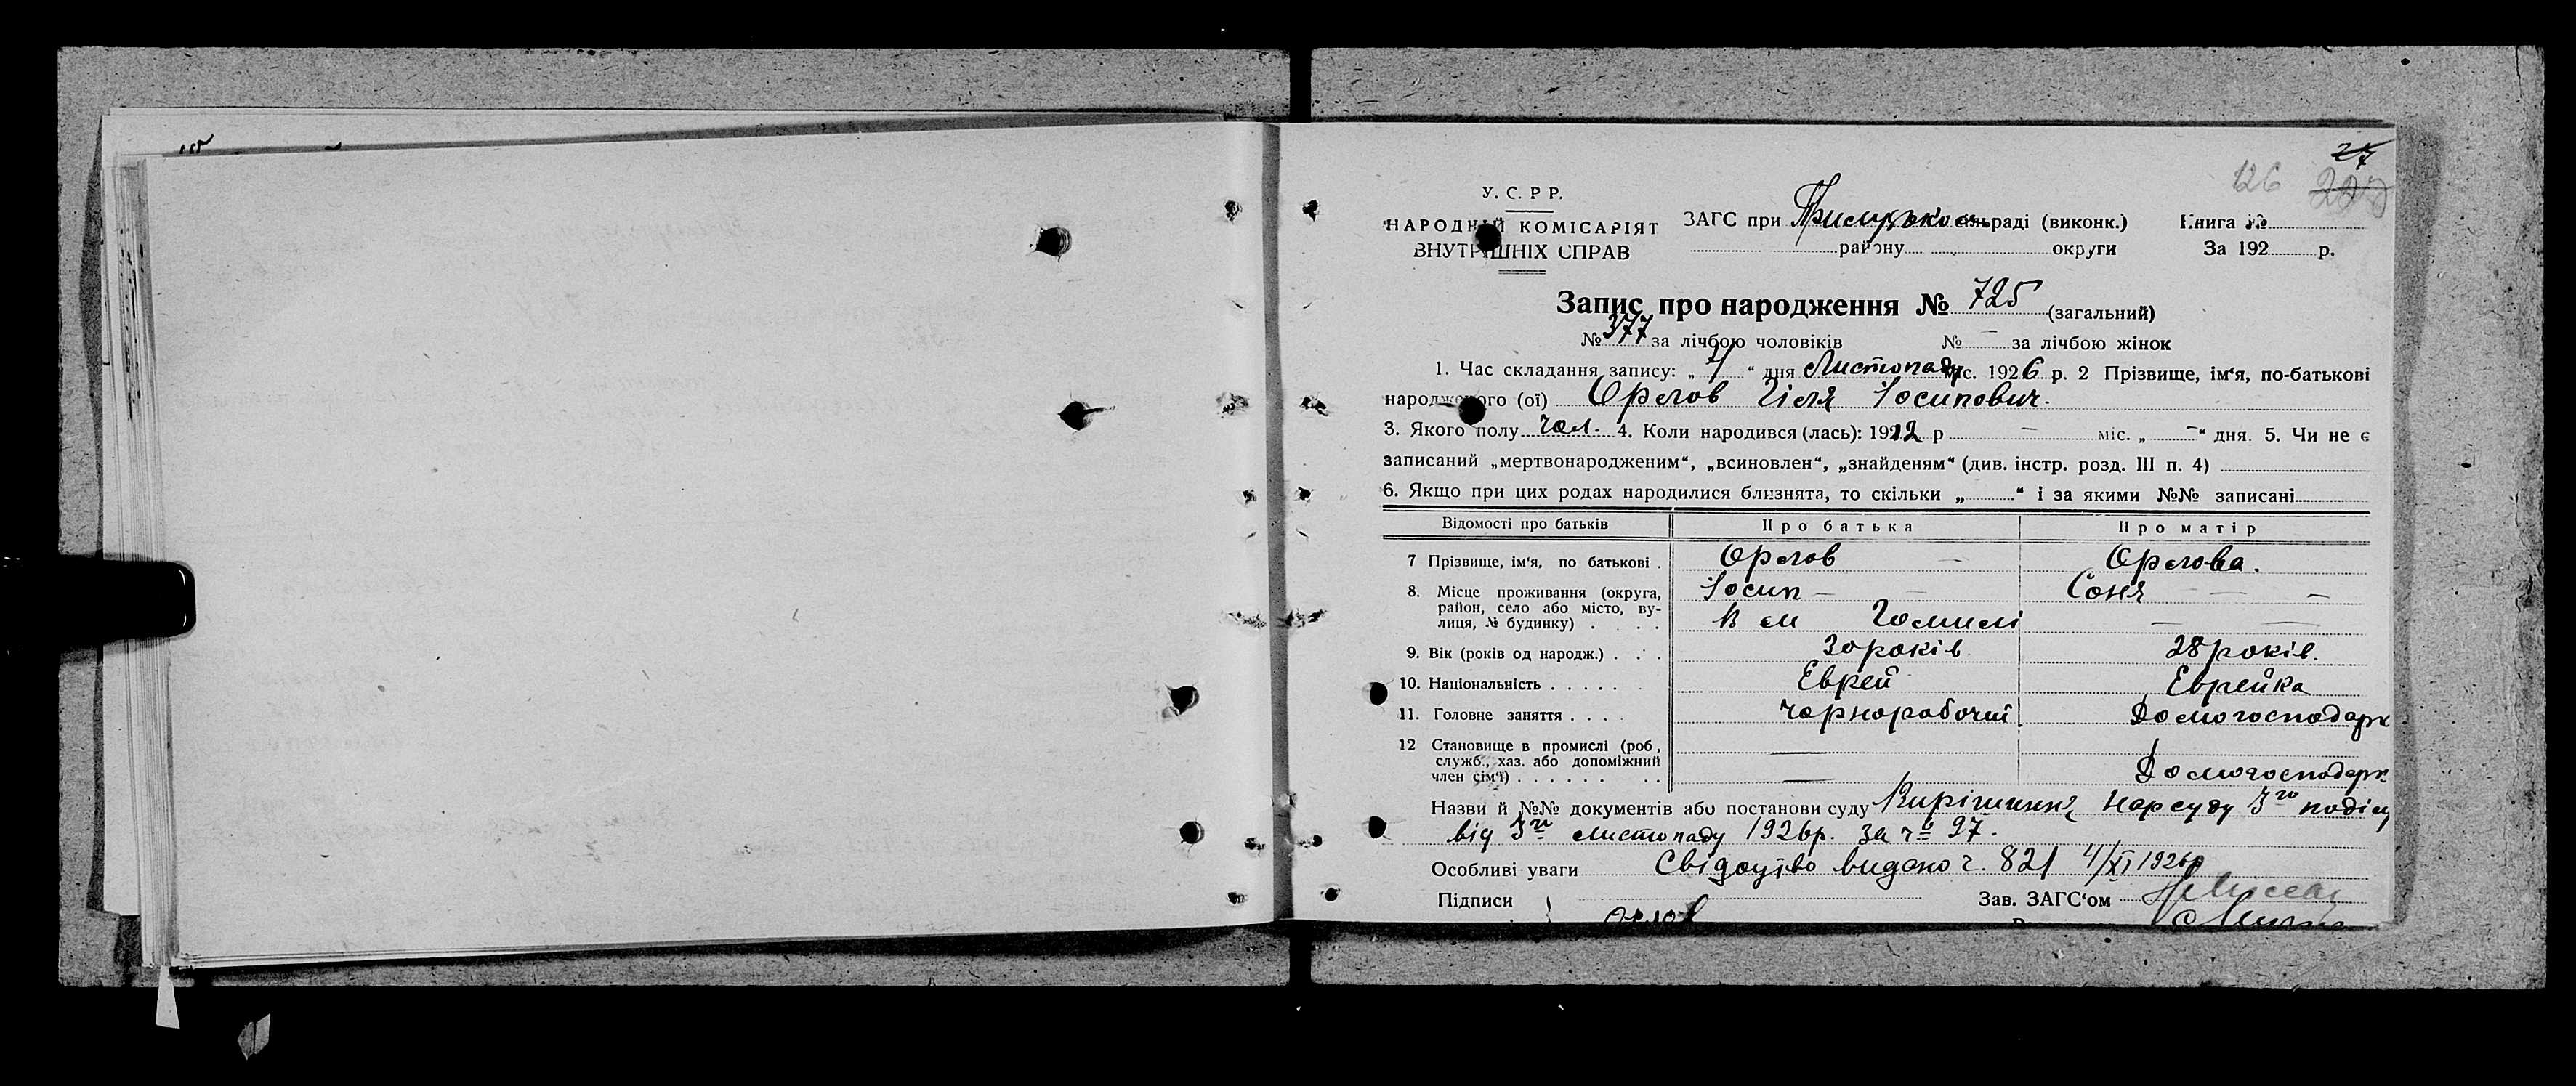 27
126
У. С. Р Р.
НАРОДНІЙ КОМІСАРІЯТ
ВНУТРІШНІХ СПРАВ
ЗАГС при раді (виконк.) Книга №
району округи За 192 р.
Запис про народження № 725 (загальний)
№ 377 за лічбою чоловіків № — за лічбою жінок
1. Час складання запису: „ 4 “ дня Листопаду міс. 1926 р. 2 Прізвище, ім‘я, по-батькові
народженого (ої) Орлов Гіля Іосипович.
3. Якого полу чол. 4. Коли народився (лась): 1912 р — міс. „ — “ дня. 5. Чи не є
записаний „мертвонародженим“, „всиновлен“, „знайденям“ (див. інстр. розд. III п. 4)
6. Якщо при цих родах народилися близнята, то скільки „ “ і за якими №№ записані
Відомості про батьків Про батька Про матір
7 Прізвище, ім‘я, по батькові . Орлов — Орлова.
8. Місце проживання (округа, Іосип — — Соня — — —
район, село або місто, ву-
лиця, № будинку) . . . . В м Гомилі — —
9. Вік (років од народж.) . . . 30 років 28 років.
10. Національність . . . . . . Еврей Еврейка
11. Головне заняття . . . . Чорнорабочий Домогосподарк
12 Становище в промислі (роб, —
служб., хаз. або допоміжний
член сім‘ї) . . . . . . . . — Домогосподарк
Назви й №№ документів або постанови суду Нарсуду 3го
від 3го Листопаду 1926р. за ч 97.
Особливі уваги Свідоцтво видано ч. 821 4/XI 1926р
Підписи Зав. ЗАГС‘ом
Орлов